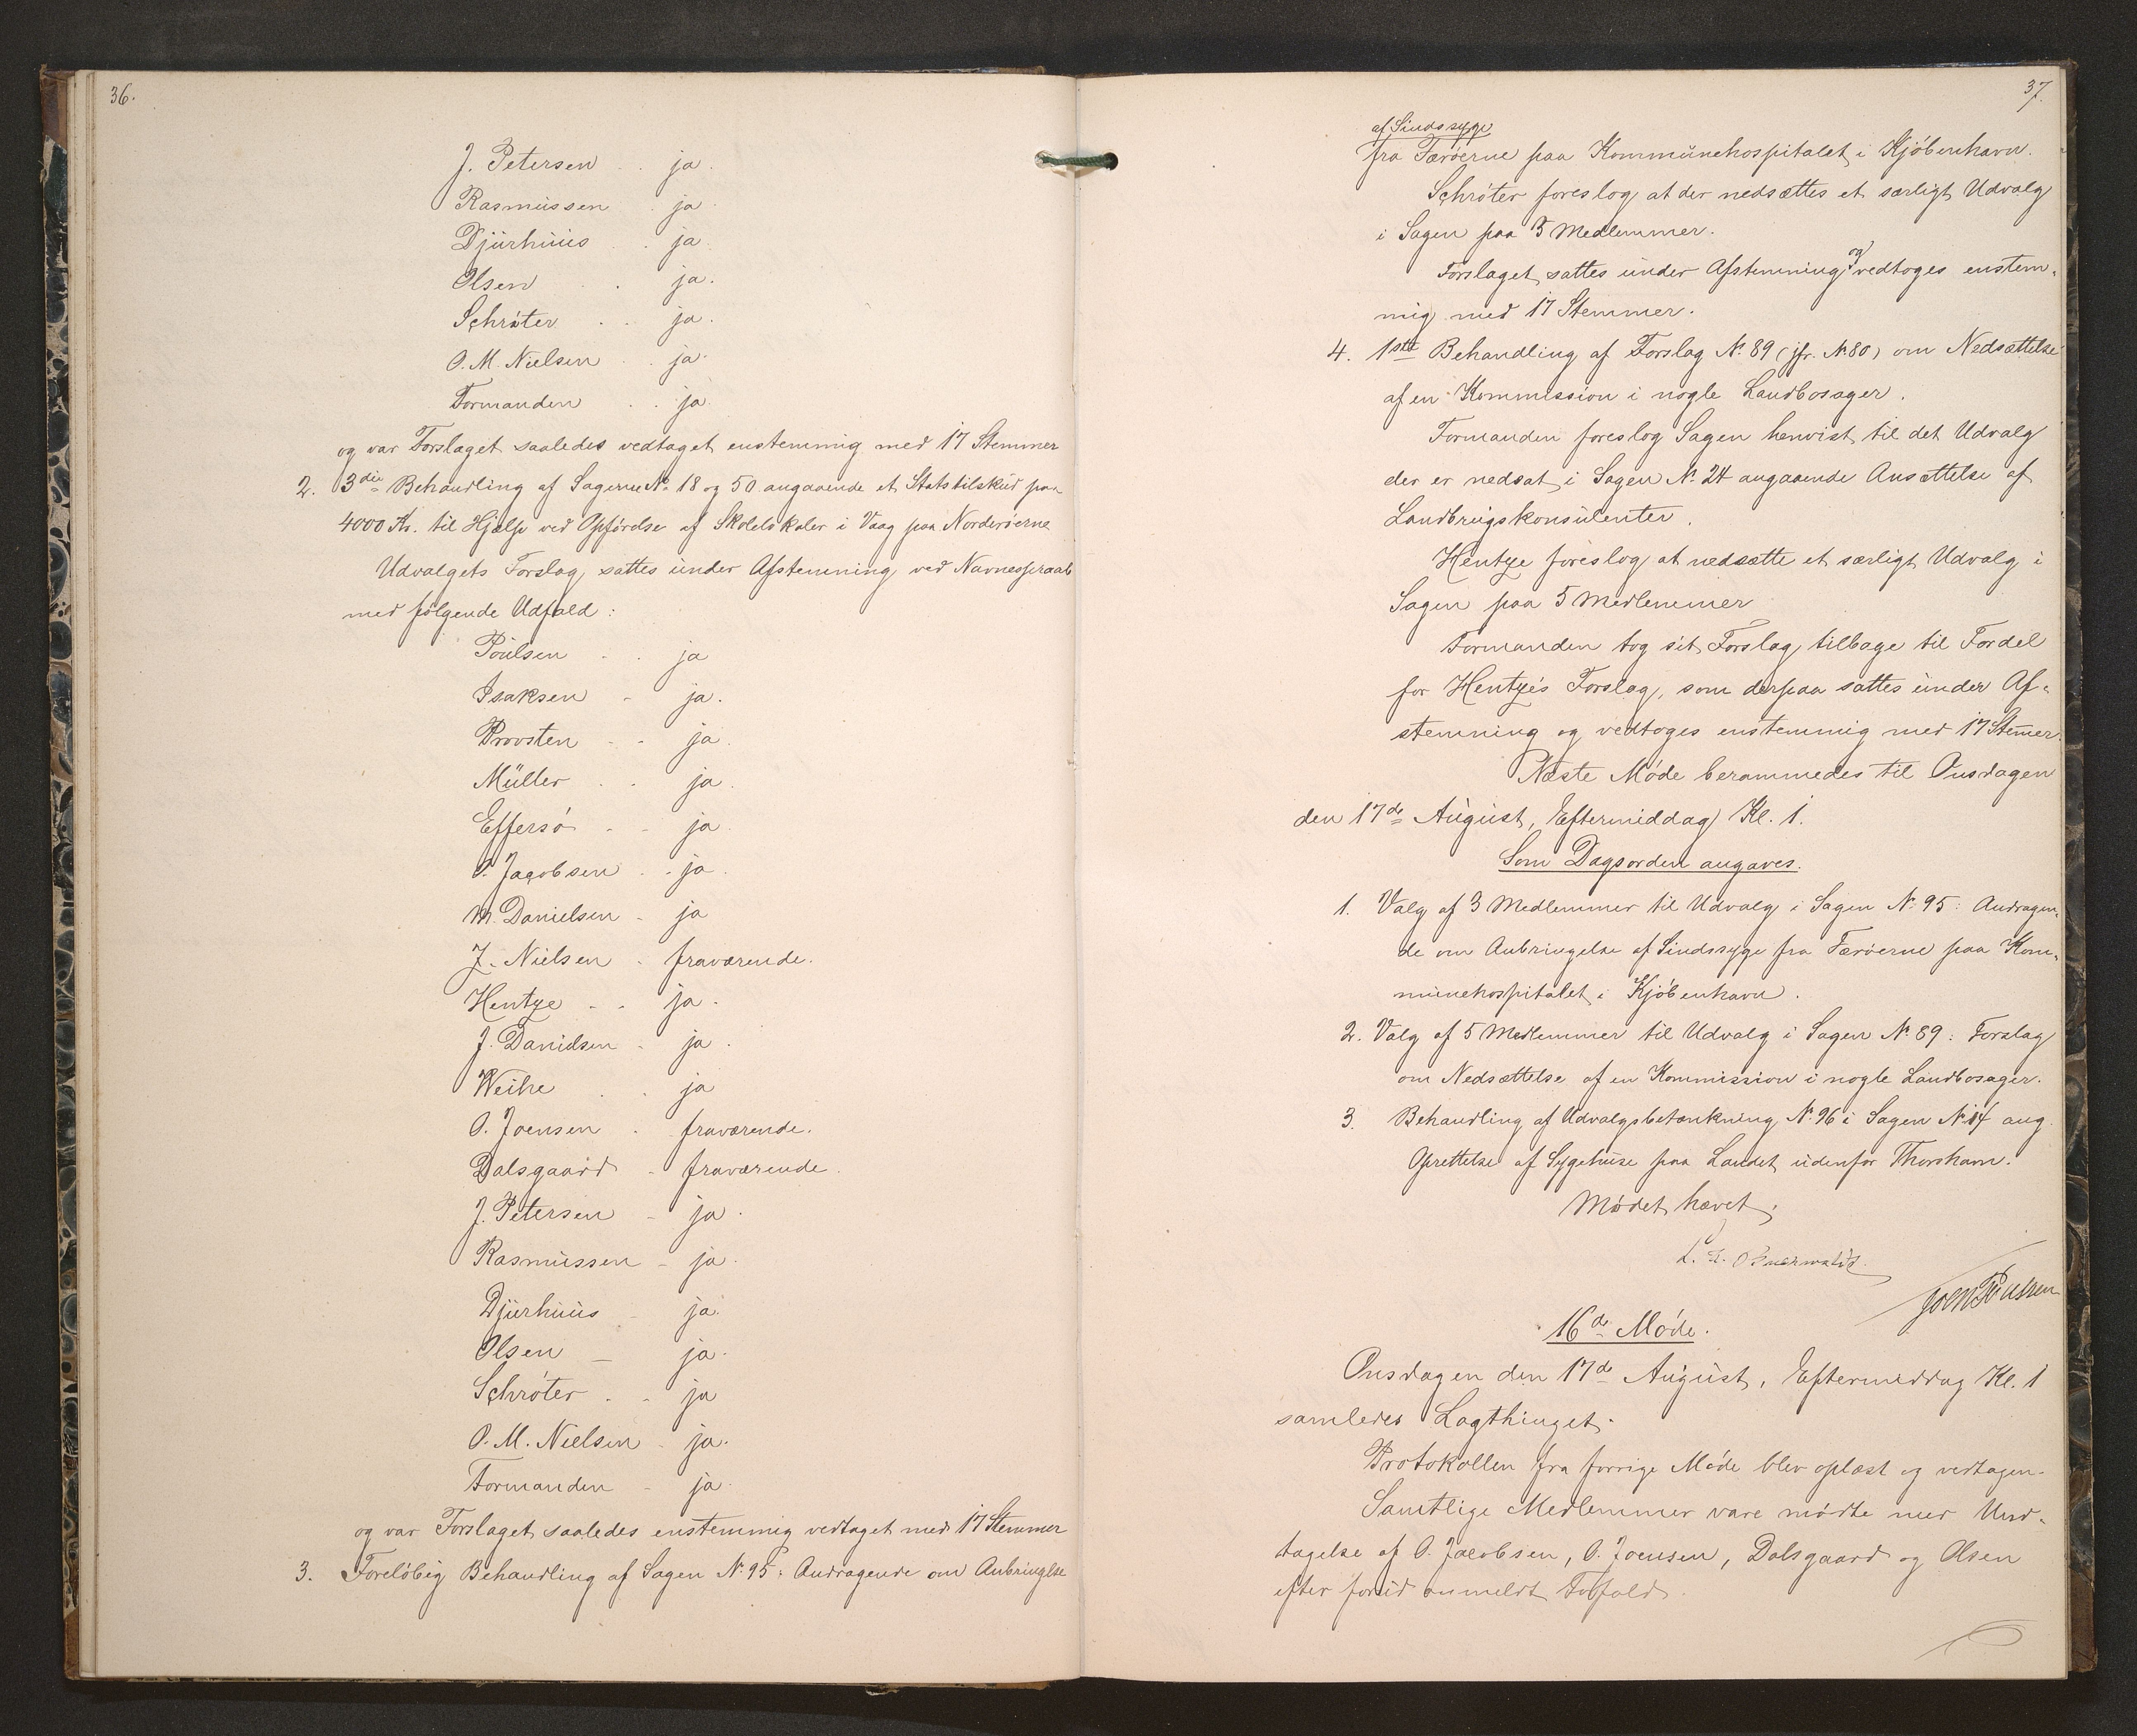 36.
J. Petersen . . ja.
Rasmussen . ja.
Djurhuus . . ja
Olsen . ja.
Schröter . . ja.
O. M. Nielsen . ja.
Formanden . . ja.
og var Forslaget saaledes vedtaget enstemmig med 17 Stemmer
2. 3die Behandling af Sagerne No 18 og 50 angaaende et Statstilskud paa
4000 Kr. til Hjælp ved Opförelse af Skolelokaler i Vaag paa Norderöerne
Udvalgets Forslag sattes under Afstemning ved Navneopraab
med fölgende Udfald:
Poulsen . . ja
Isaksen - ja.
Provsten - - ja.
Müller . . ja.
Effersö - - ja.
O. Jacobsen . . ja.
M. Danielsen - ja
J. Nielsen . fraværende.
Hentze - - ja.
J. Danielsen - ja.
Weihe . . ja
O. Joensen . fraværende.
Dalsgaard - fraværende.
J. Petersen - ja.
Rasmussen - ja.
Djurhuus - ja.
Olsen - ja.
Schröter . - ja
O. M. Nielsen - ja.
Formanden - ja.
og var Forslaget saaledes enstemmig vedtaget med 17 Stemmer
3. Forelöbig Behandling af Sagen No 95: Andragende om Anbringelse
37.
af Sindssyge
fra Færöerne paa Kommunehospitalet i Kjöbenhavn.
Schröter foreslog at der nedsættes et særligt Udvalg
i Sagen paa 3 Medlemmer.
Forslaget sattes under Afstemning og vedtoges enstem-
mig med 17 Stemmer.
4. 1ste Behandling af Forslag No 89 (jfr. No 80) om Nedsættelse
af en Kommission i nogle Landbosager.
Formanden foreslog Sagen henvist til det Udvalg
der er nedsat i Sagen No 24 angaaende Ansættelse af
Landbrugskonsulenter.
Hentze foreslog at nedsætte et særligt Udvalg i
Sagen paa 5 Medlemmer
Formanden tog sit Forslag tilbage til Fordel
for Hentzes Forslag, som derpaa sattes under Af-
stemning og vedtoges enstemmig med 17 Stemer.
Næste Möde berammedes til Onsdagen
den 17de August, Eftermiddag Kl. 1.
Som Dagsorden angaves.
1. Valg af 3 Medlemmer til Udvalg i Sagen No 95: Andragen-
de om Anbringelse af Sindssyge fra Færöerne paa Kom-
munehospitalet i Kjöbenhavn.
2. Valg af 5 Medlemmer til Udvalg i Sagen No 89: Forslag
om Nedsættelse af en Kommission i nogle Landbosager.
3. Behandling af Udvalgsbetænkning No 96 i Sagen No 14 ang.
Oprettelse af Sygehuse paa Landet udenfor Thorshavn.
Mödet hævet.
Joen Poulsen
16de Möde.
Onsdagen den 17de August, Eftermiddag Kl. 1
samledes Lagthinget.
Protokollen fra forrige Möde blev oplæst og vedtagen.
Samtlige Medlemmer vare mödte med Und-
tagelse af O. Jacobsen, O. Joensen, Dalsgaard og Olsen
efter forud anmeldt Forfald.